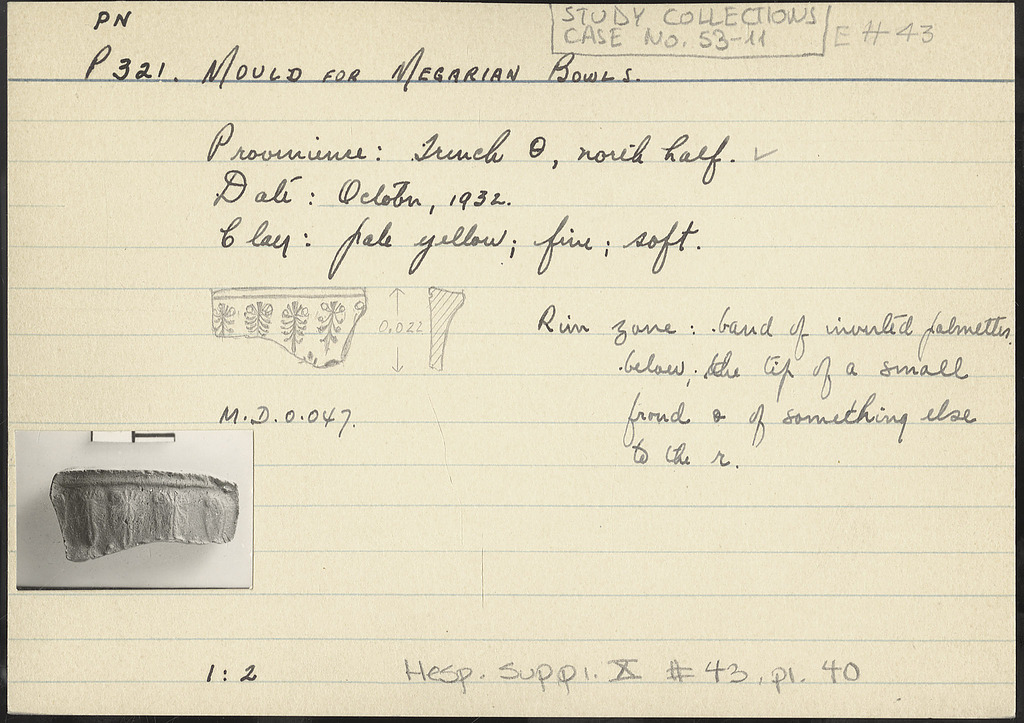 PN
STUDY COLLECTIONS
CASE NO. 53-11
E # 43
P 321. MOULD FOR MEGARIAN BOWLS.
Provenience: Trench Θ, north half. ✓
Date: October, 1932.
Clay: pale yellow; fine; soft.
0.022
Rim zone: band of inverted palmettes,
below, the tip of a small
frond & of something else
to the r.
M.D. 0.047.
1:2
Hesp. Suppl. X # 43, pl. 40